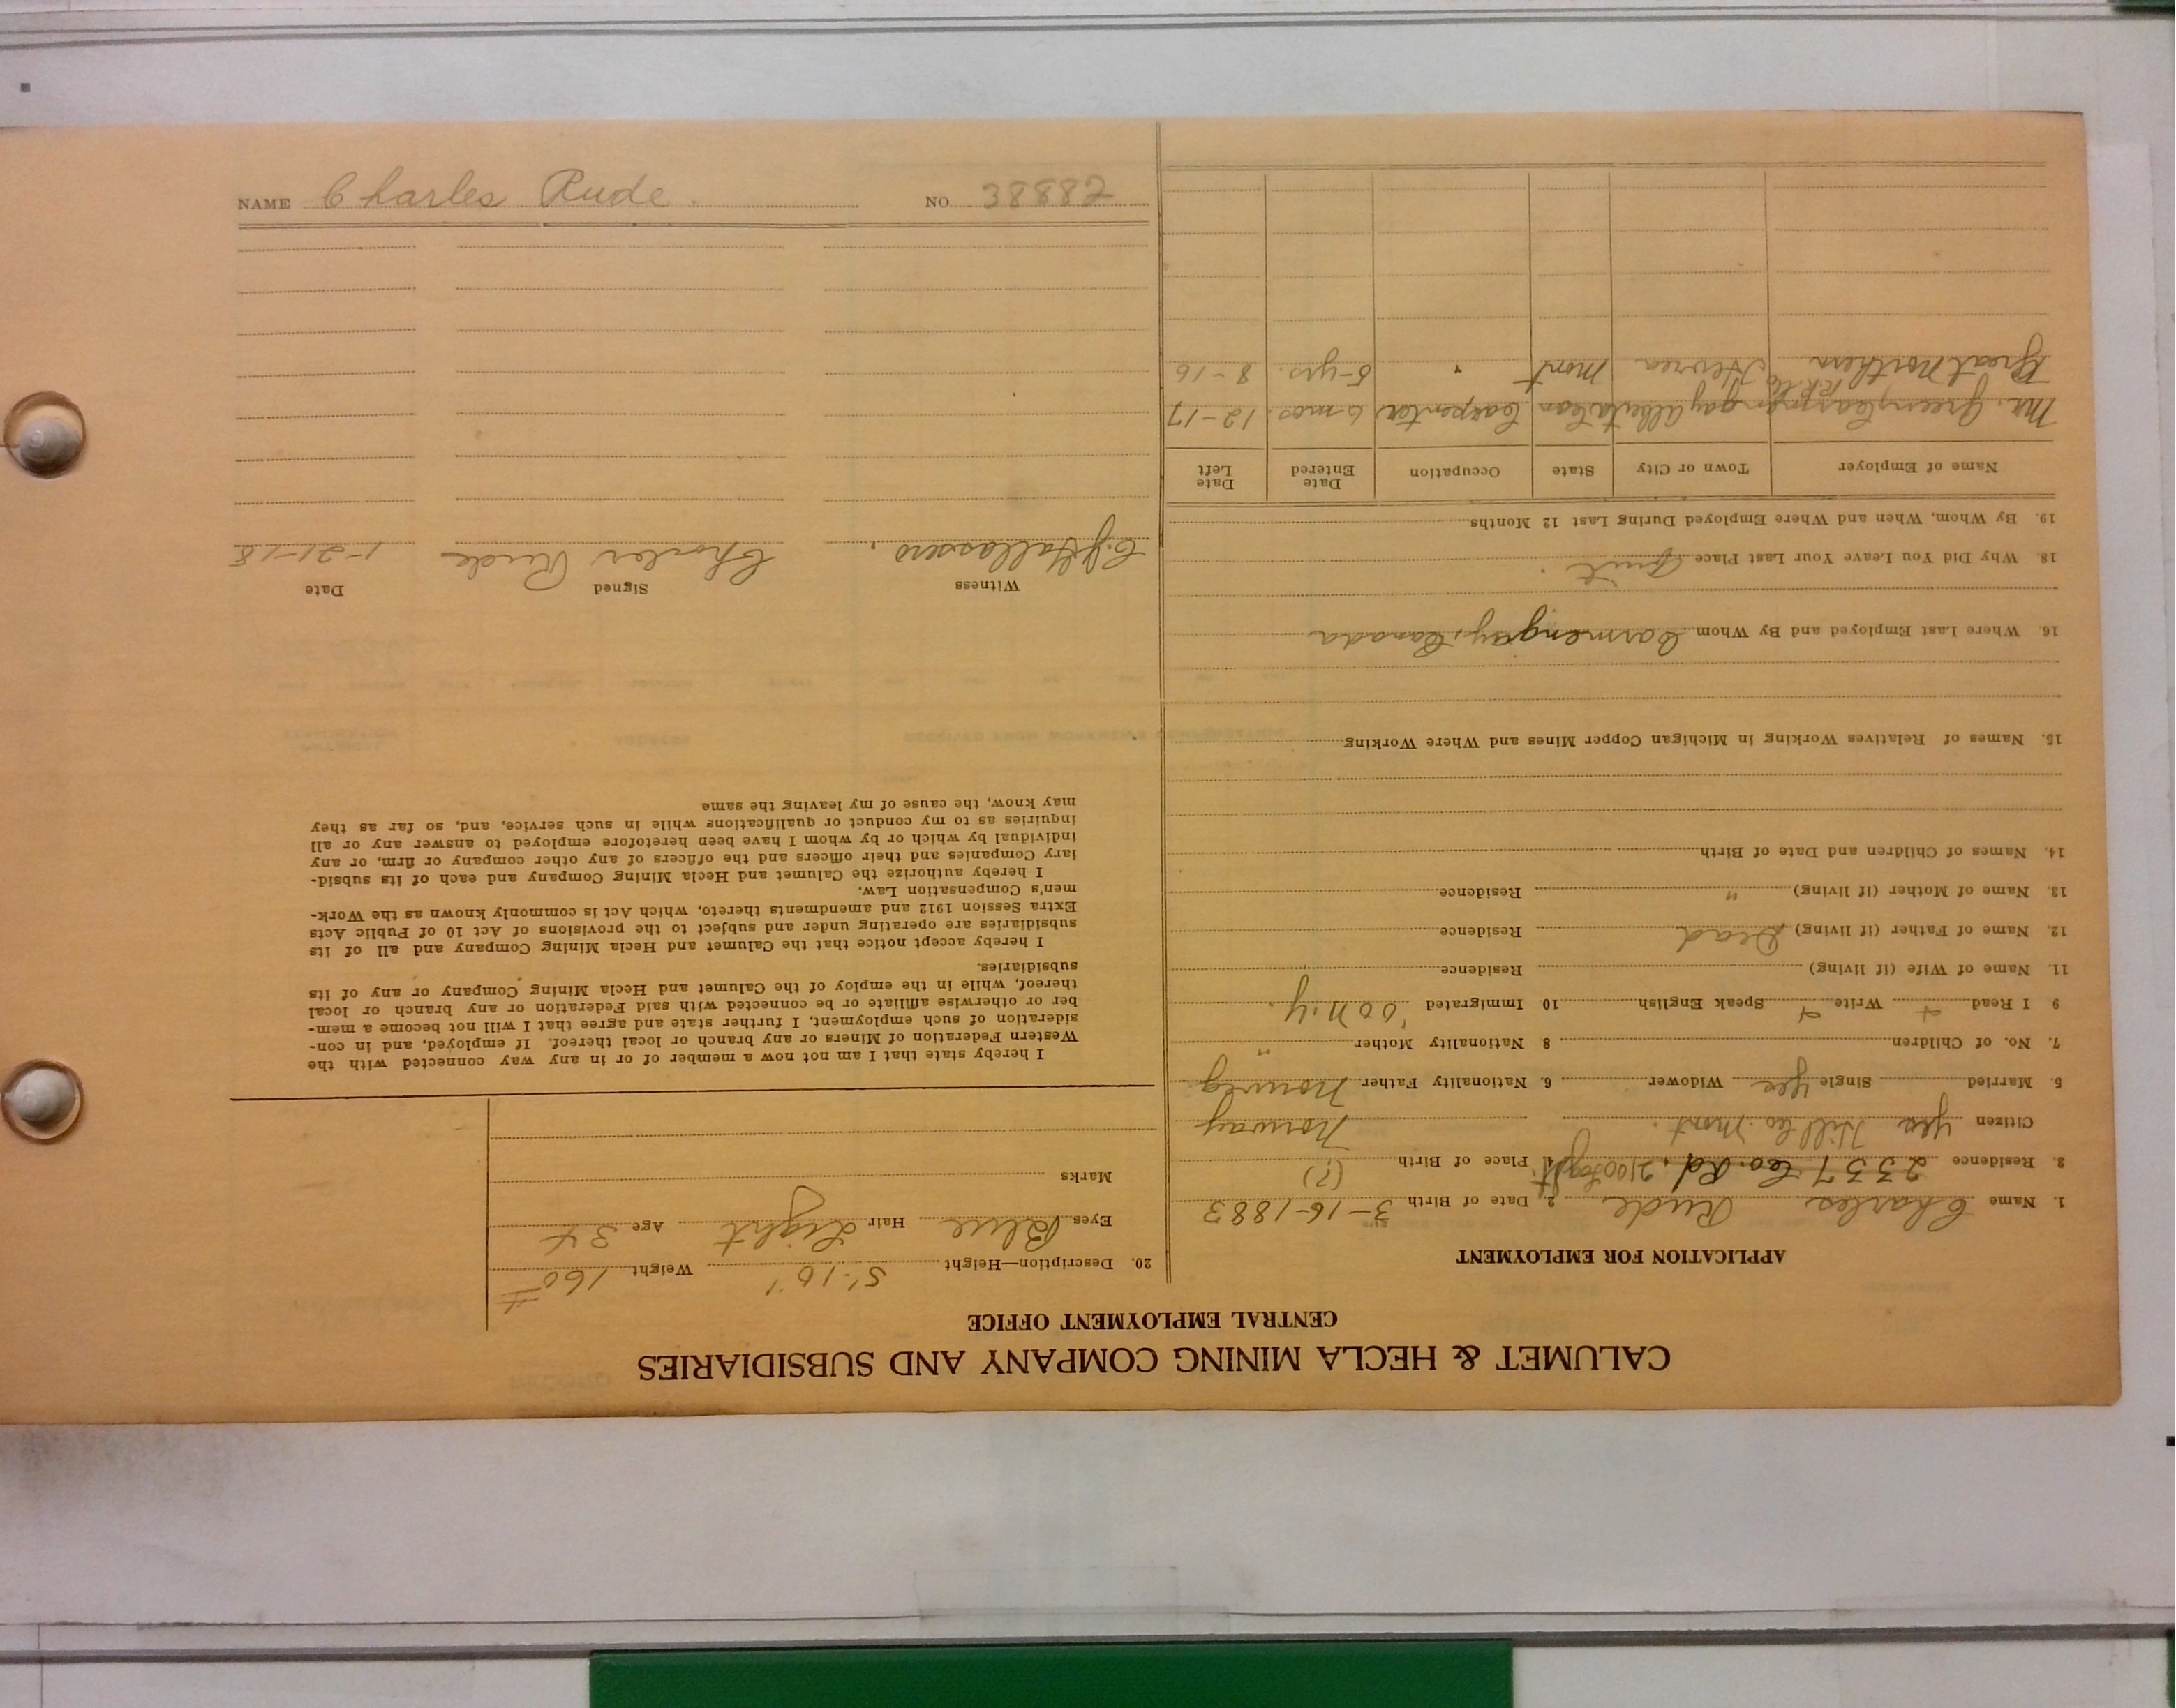 CALUMET & HECLA MINING COMPANY AND SUBSIDIARIES
CENTRAL EMPLOYMENT OFFICE
APPLICATION FOR EMPLOYMENT
1. Name Charles Rude 2. Date of Birth 3-16-1883
3. Residence 2337 Co. Rd. 2100 4. Place of Birth (?)
Citizen yes Hill Co. Mont. Norway
5. Married Single yes Widower 6. Nationality Father Norwg.
7. No. of Children 8 Nationality Mother "
9 I Read + Write + Speak English 10. Immigrated '00 N.Y.
11. Name of Wife (if living) Residence
12. Name of Father (if living) Dead Residence
13. Name of Mother (if living) " Residence
14. Names of Children and Date of Birth
15. Names of Relatives Working in Michigan Copper Mines and Where Working
16. Where Last Employed and By Whom Carmengay, Canada
18. Why Did You Leave Your Last Place Quit.
19. By Whom, When and Where Employed During Last 12 Months
Name of Employer Town or City State Occupation Date Entered Date Left
Mr. Green Carmengay Alberta Can Carpenter 6 mos. 12-17
Great Northern R.R. Co Mont " 5-yrs. 8-16
20. Description—Height 5'-10" Weight 160#
Eyes Blue Hair Light Age 34
Marks
I hereby state that I am not now a member of or in any way connected with the
Western Federation of Miners or any branch or local thereof. If employed, and in con-
sideration of such employment, I further state and agree that I will not become a mem-
ber or otherwise affiliate or be connected with said Federation or any branch or local
thereof, while in the employ of the Calumet and Hecla Mining Company or any of its
subsidiaries.
I hereby accept notice that the Calumet and Hecla Mining Company and all of its
subsidiaries are operating under and subject to the provisions of Act 10 of Public Acts
Extra Session 1912 and amendments thereto, which Act is commonly known as the Work-
men's Compensation Law.
I hereby authorize the Calumet and Hecla Mining Company and each of its subsid-
iary Companies and their officers and the officers of any other company or firm, or any
individual by which or by whom I have been heretofore employed to answer any or all
inquiries as to my conduct or qualifications while in such service, and, so far as they
may know, the cause of my leaving the same
Witness Signed Date
C.J. Charles Rude 1-21-18
NAME Charles Rude. NO. 38882